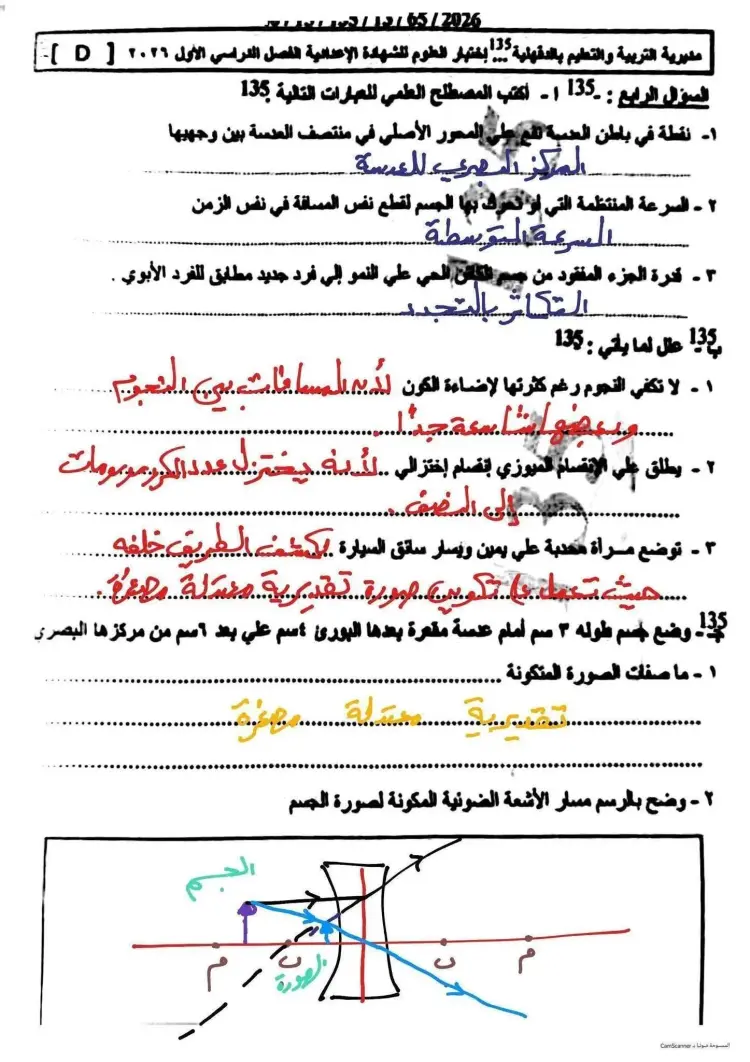 2026/65/13/135/13/4
مديرية التربية والتعليم بالدقهلية 135 إختبار العلوم للشهادة الإعدادية الفصل الدراسي الأول ٢٠٢٦ [ D ]
السؤال الرابع : -135 ا- أكتب المصطلح العلمي للعبارات التالية 135
١- نقطة في باطن العدسة تقع علي المحور الأصلي في منتصف العدسة بين وجهيها
المركز البصري للعدسة
٢ - السرعة المنتظمة التي لو تحرك بها الجسم لقطع نفس المسافة في نفس الزمن
السرعة المتوسطة
٣ - قدرة الجزء المفقود من جسم الكائن الحي علي النمو إلي فرد جديد مطابق للفرد الأبوي .
التكاثر بالتجدد
135
ب- علل لما يأتي : 135
١ - لا تكفي النجوم رغم كثرتها لإضاءة الكون لأن المسافات بين النجوم
وبعضها شاسعة جدًا .
٢ - يطلق علي الإنقسام الميوزي إنقسام إختزالي لأنه يختزل عدد الكروموسومات
إلى النصف .
٣ - توضع مرأة محدبة علي يمين ويسار سائق السيارة لكشف الطريق خلفه
حيث تعمل على تكوين صورة تقديرية معتدلة مصغرة .
135
جـ- وضع جسم طوله ٣ سم أمام عدسة مقعرة بعدها البورئ ٤سم علي بعد ٦سم من مركزها البصري
١ - ما صفات الصورة المتكونة
تقديرية معتدلة مصغرة
٢ - وضح بالرسم مسار الأشعة الضوئية المكونة لصورة الجسم
الجسم
م ن ن م
الصورة
الممسوحة ضوئيا بـ CamScanner